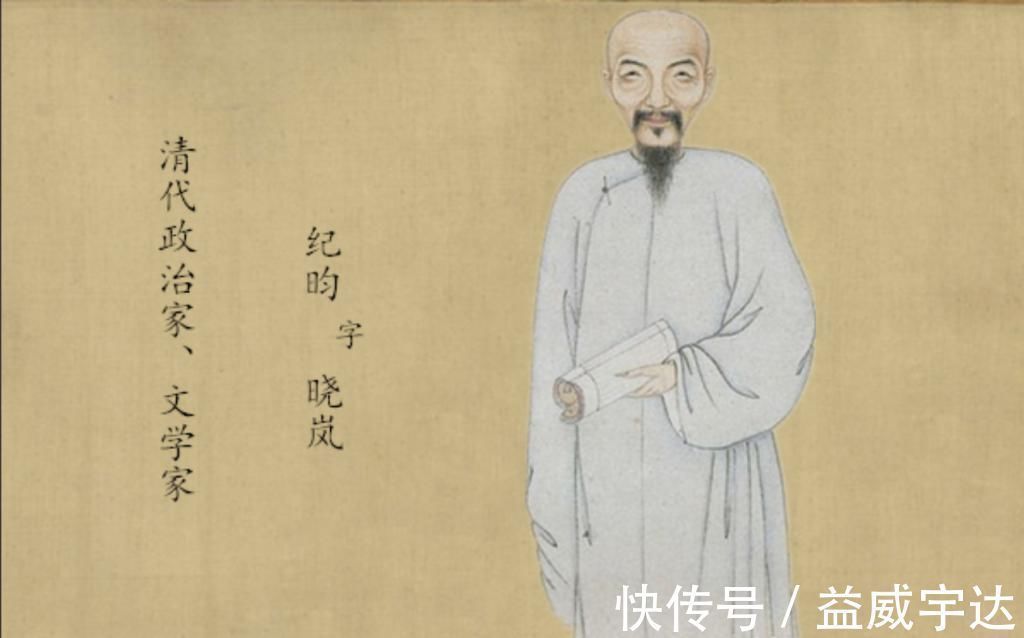 纪昀
字
晓岚
清代政治家、文学家
快传号 / 益威宇达